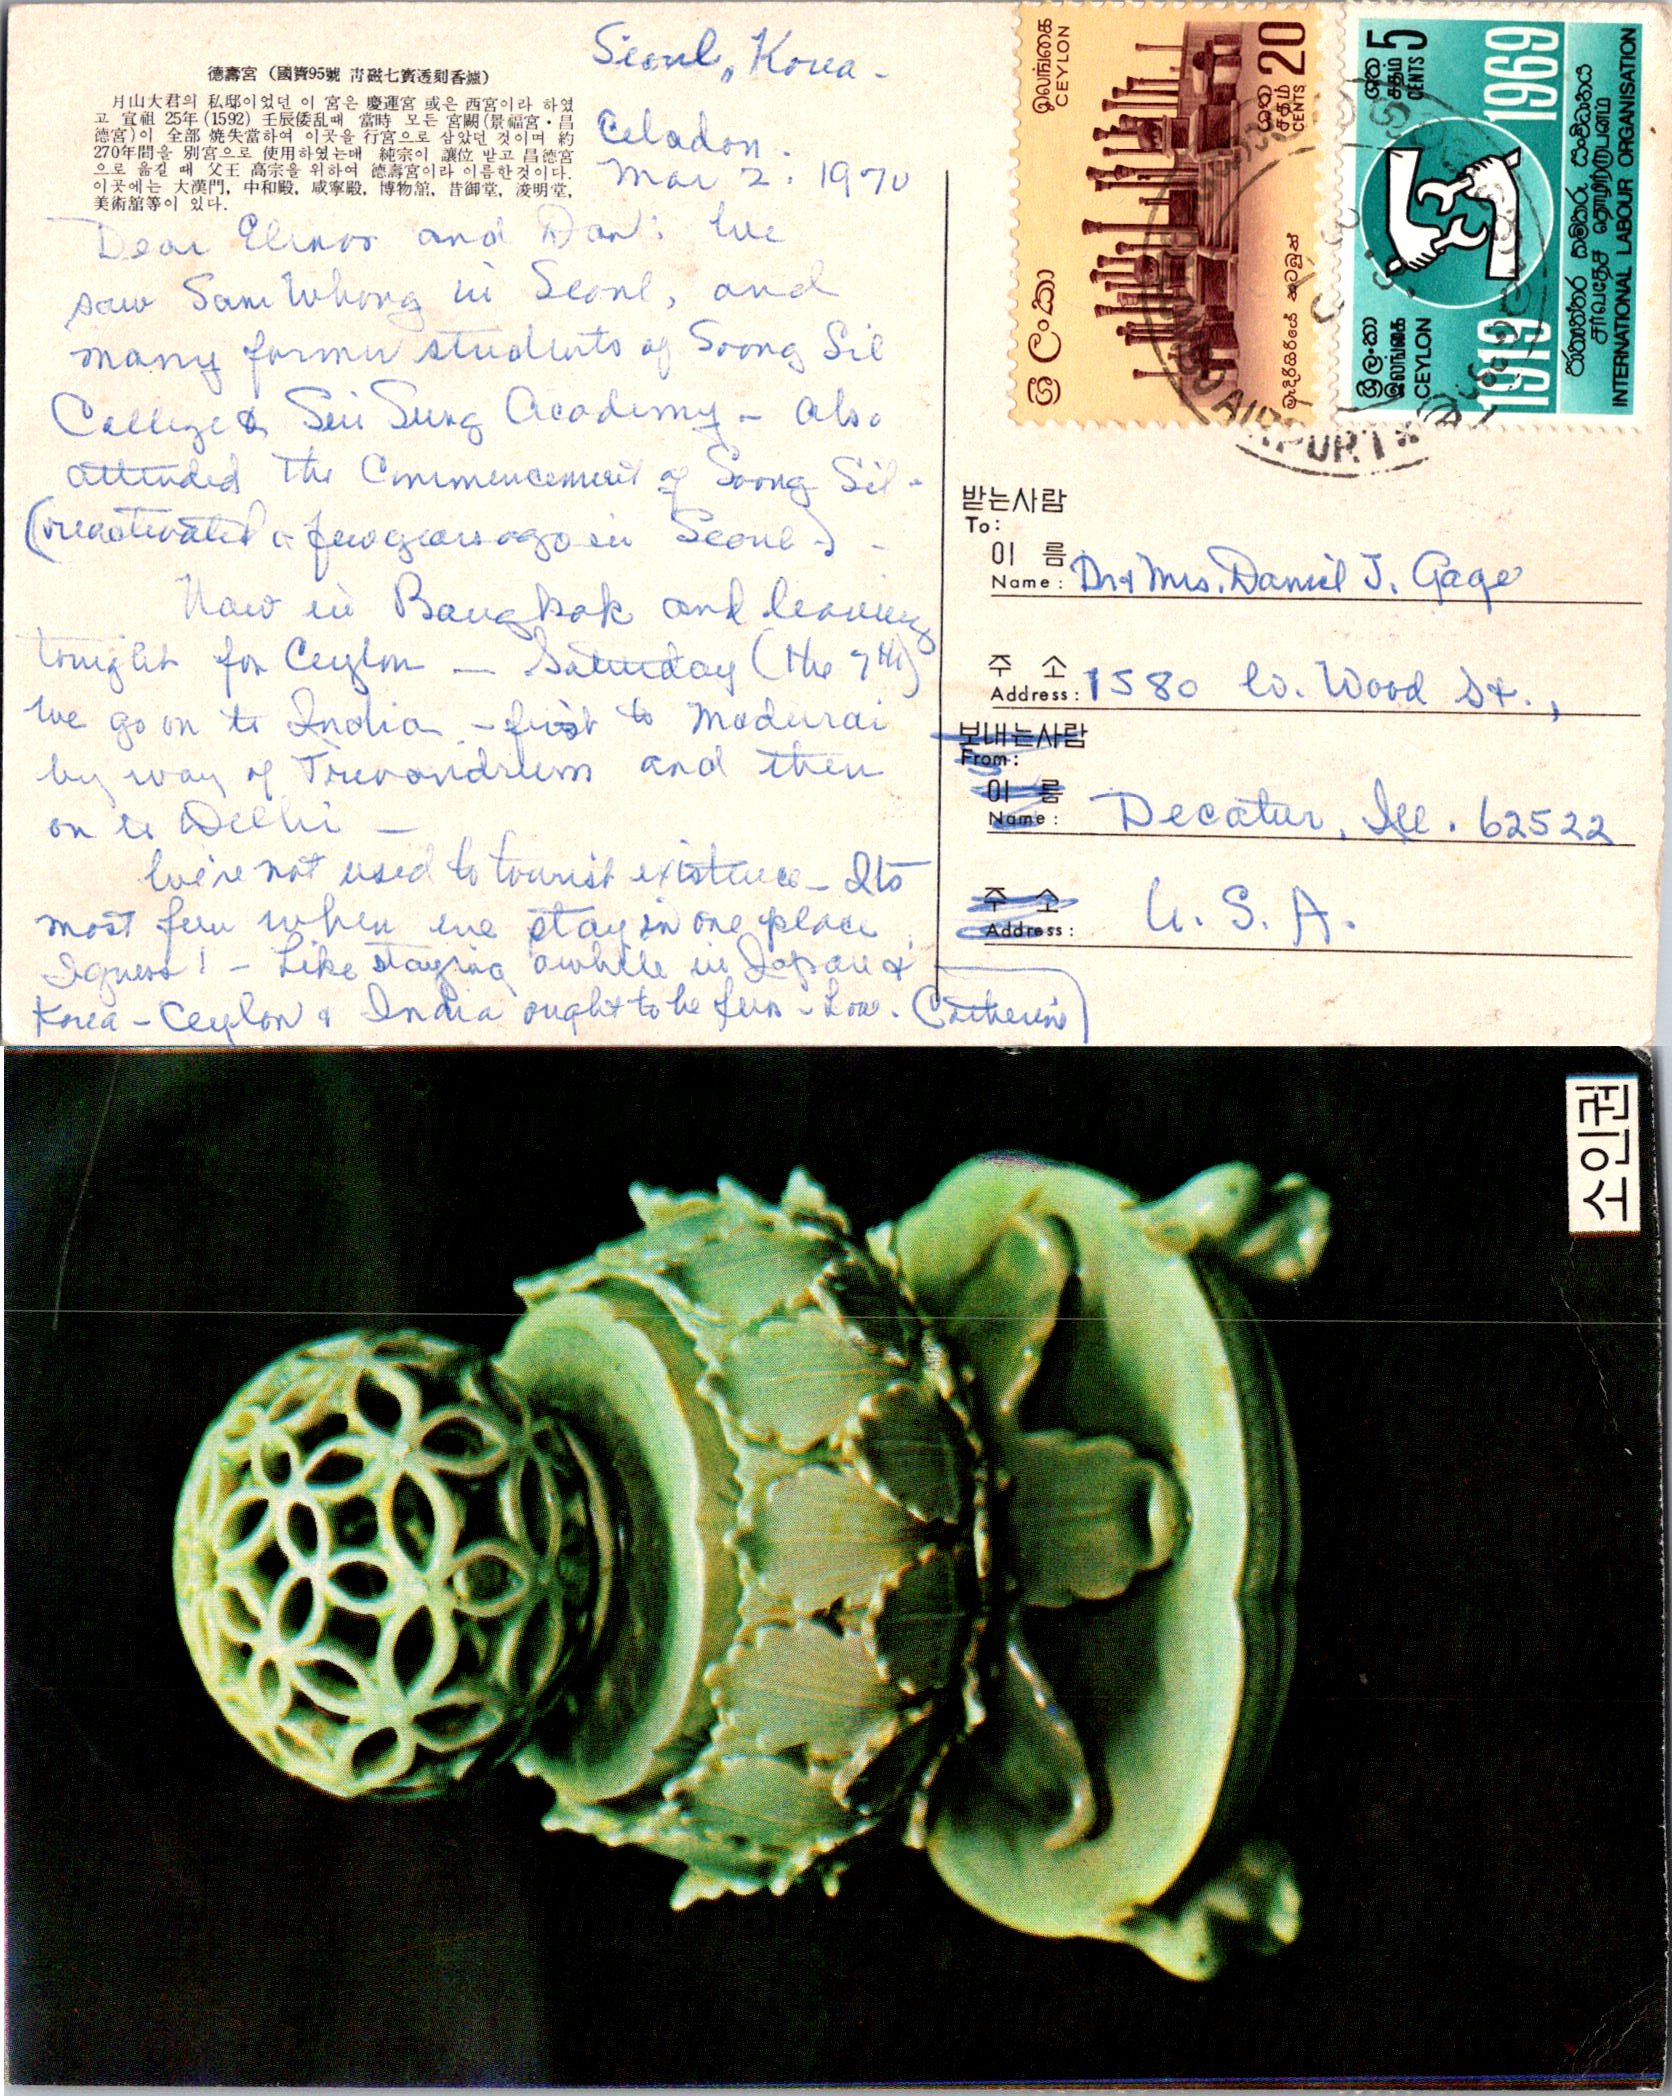 德壽宮 (國寶95號 靑磁七寶透刻香爐)
月山大君의 私邸이었던 이 宮은 慶運宮 或은 西宮이라 하였
고 宣祖 25年(1592) 壬辰倭乱때 當時 모든 宮闕(景福宮・昌
德宮)이 全部 燒失當하여 이곳을 行宮으로 삼았던 것이며 約
270年間을 別宮으로 使用하였는데 純宗이 讓位 받고 昌德宮
으로 옮길 때 父王 高宗을 위하여 德壽宮이라 이름한것이다.
이곳에는 大漢門, 中和殿, 咸寧殿, 博物舘, 昔御堂, 浚明堂,
美術舘等이 있다.
Seoul, Korea -
Celadon.
Mar 2. 1970
Dear Elinor and Dan: We
saw Sam Whong in Seoul, and
many former students of Soong Sil
College & Sin Sung Academy - also
attended the Commencement of Soong Sil -
(reactivated a few years ago in Seoul -) -
Now in Bangkok and leaving
tonight for Ceylon — Saturday (the 7th)
we go on to India - first to Madurai
by way of Trivandrum and then
on to Delhi —
We're not used to tourist existence - Its
most fun when we stay in one place
I guess! - Like staying awhile in Japan &
Korea - Ceylon & India ought to be fun - Love. Catherine
ශ්‍රී ලංකා
இலங்கை
CEYLON
සත
சதம் 20
CENTS
මැදිරිගිරියේ වටදාගෙය
ශ්‍රී ලංකා
இலங்கை
CEYLON
සත
சதம் 5
CENTS
1919 1969
சர்வதேச தொழிற்ஸ்தாபனம்
INTERNATIONAL LABOUR ORGANISATION
AIRPORT *
받는사람
To:
이 름
Name: Dr & Mrs. Daniel J. Gage
주 소
Address: 1580 W. Wood St.,
보내는사람
From:
이 름
Name: Decatur, Ill. 62522
주 소
Address: U. S. A.
소인권